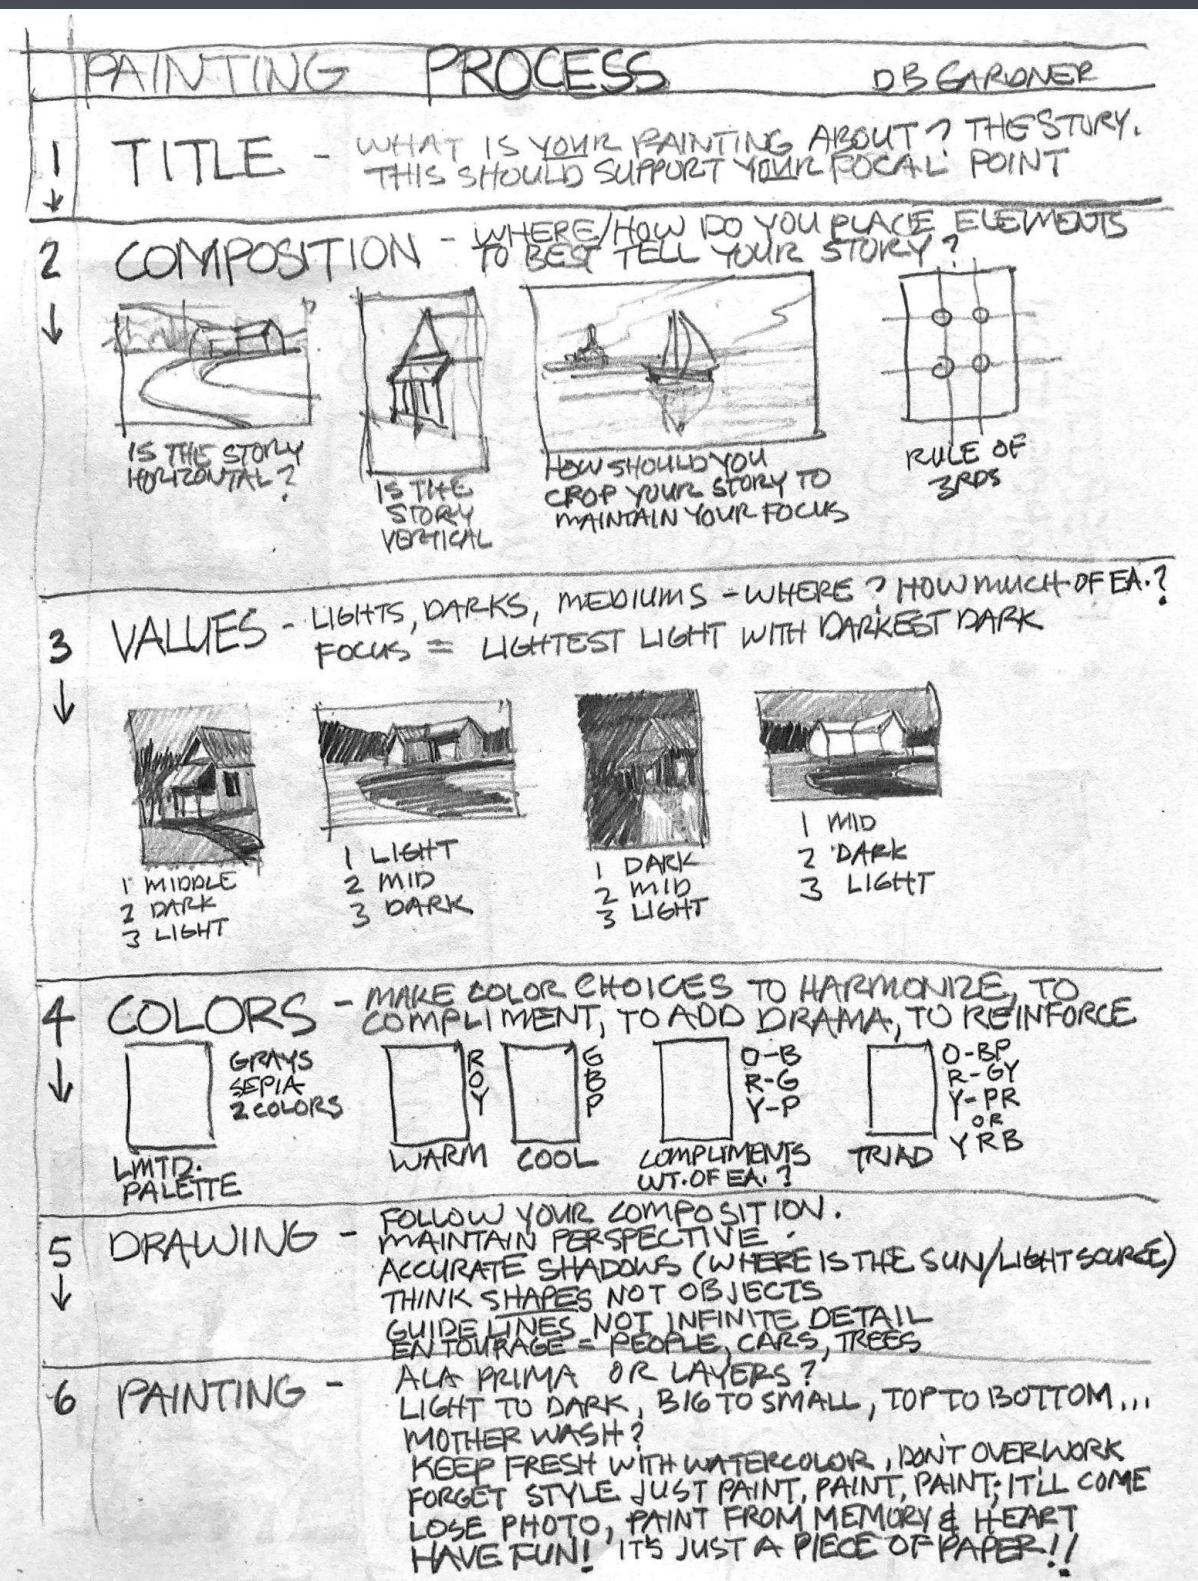 PAINTING PROCESS DB GARDNER
1 TITLE - WHAT IS YOUR PAINTING ABOUT? THE STORY.
THIS SHOULD SUPPORT YOUR FOCAL POINT
2 COMPOSITION - WHERE/HOW DO YOU PLACE ELEMENTS
TO BEST TELL YOUR STORY?
IS THIS STORY
HORIZONTAL?
IS THE
STORY
VERTICAL
HOW SHOULD YOU
CROP YOUR STORY TO
MAINTAIN YOUR FOCUS
RULE OF
3RDS
3 VALUES - LIGHTS, DARKS, MEDIUMS - WHERE? HOW MUCH OF EA.?
FOCUS = LIGHTEST LIGHT WITH DARKEST DARK
1 MIDDLE
2 DARK
3 LIGHT
1 LIGHT
2 MID
3 DARK
1 DARK
2 MID
3 LIGHT
1 MID
2 DARK
3 LIGHT
4 COLORS - MAKE COLOR CHOICES TO HARMONIZE, TO
COMPLIMENT, TO ADD DRAMA, TO REINFORCE
GRAYS
SEPIA
2 COLORS
LMTD.
PALETTE
R
O
Y
WARM
G
B
P
COOL
O-B
R-G
Y-P
COMPLIMENTS
WT. OF EA.?
O-BP
R-GY
Y-PR
OR
YRB
TRIAD
5 DRAWING - FOLLOW YOUR COMPOSITION.
MAINTAIN PERSPECTIVE.
ACCURATE SHADOWS (WHERE IS THE SUN/LIGHT SOURCE)
THINK SHAPES NOT OBJECTS
GUIDE LINES NOT INFINITE DETAIL
ENTOURAGE = PEOPLE, CARS, TREES
6 PAINTING - ALA PRIMA OR LAYERS?
LIGHT TO DARK, BIG TO SMALL, TOP TO BOTTOM...
MOTHER WASH?
KEEP FRESH WITH WATERCOLOR, DON'T OVERWORK
FORGET STYLE JUST PAINT, PAINT, PAINT; IT'LL COME
LOSE PHOTO, PAINT FROM MEMORY & HEART
HAVE FUN! IT'S JUST A PIECE OF PAPER!!